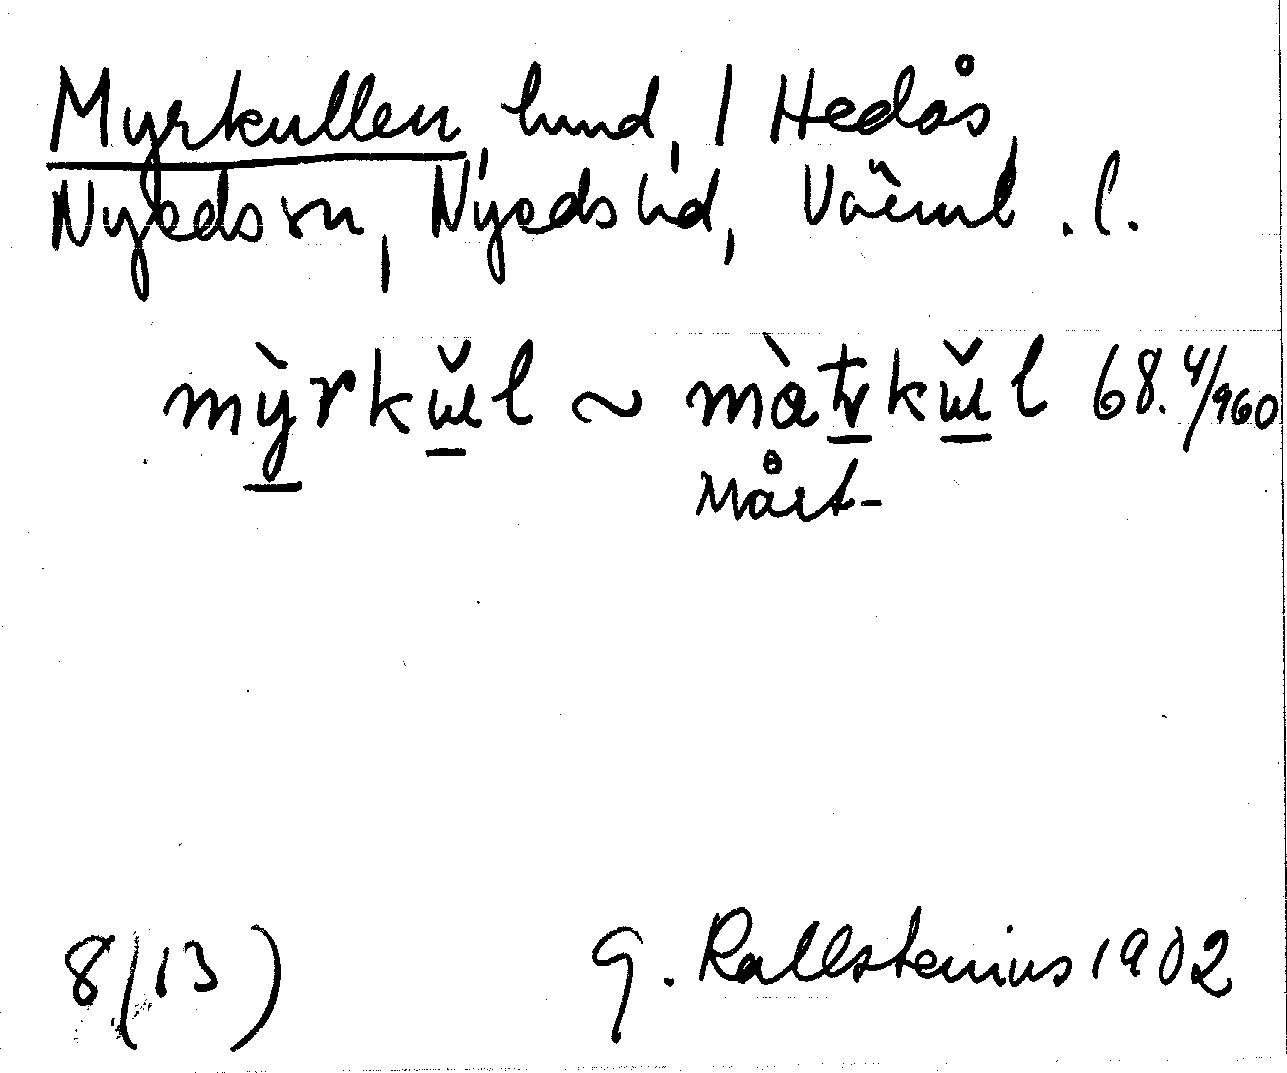 Myrkullen, hmd, 1 Hedås
Nyeds sn, Nyeds hd, Värml. l.
mỳrkŭl ~ màtrkŭl 68. 4/960
Mårt-
8(13) G. Kallstenius 1902